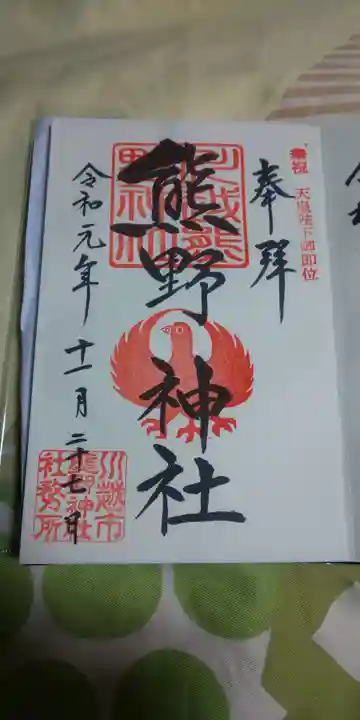 奉祝 天皇陛下御即位
奉拝
川越熊
野神社
熊野神社
令和元年 十一月 二十七日
川越市
熊野神社
社務所